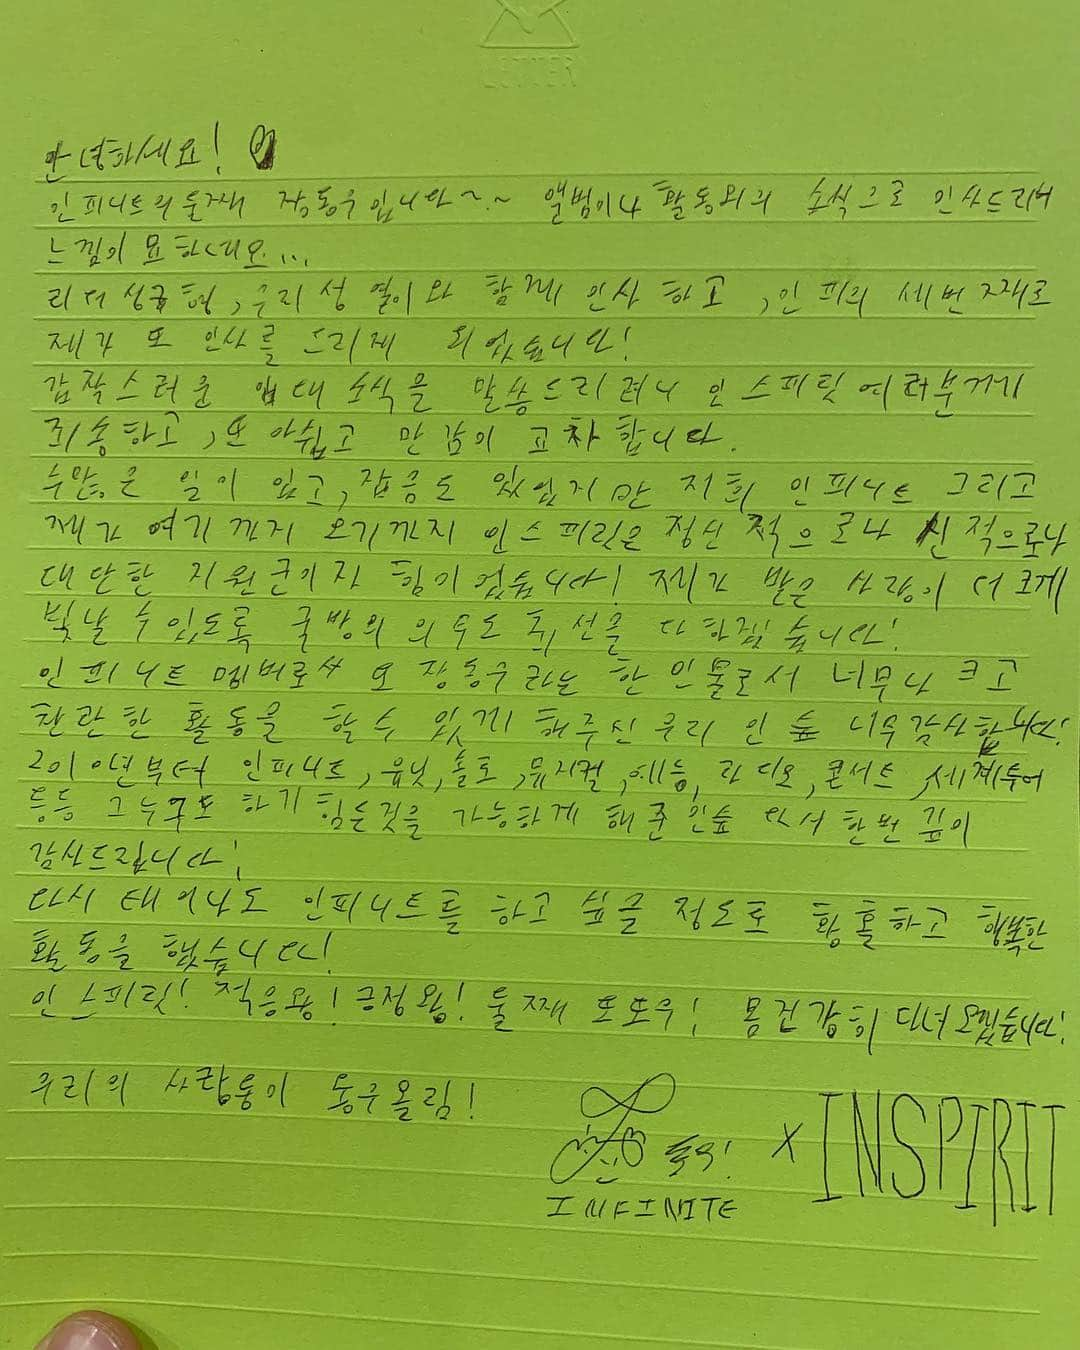 LETTER
안녕하세요!
인피니트의 둘째 장동우입니다~~ 앨범이나 활동외의 소식으로 인사드리니
느낌이 묘하네요...
리더 성규형, 우리 성열이와 함께 인사 하고, 인피의 세번째로
제가 또 인사를 드리게 되었습니다!
갑작스러운 입대 소식을 말씀드리려니 인스피릿 여러분께
죄송하고, 또 아쉽고 만감이 교차합니다.
수많은 일이 있고, 잡음도 있었지만 저희 인피니트 그리고
제가 여기까지 오기까지 인스피릿은 정신적으로나 신적으로나
대단한 지원군이자 힘이었습니다! 제가 받은 사랑이 더 크게
빛날 수 있도록 국방의 의무도 최선을 다하겠습니다!
인피니트 멤버로서 또 장동우라는 한 인물로서 너무나 크고
찬란한 활동을 할 수 있게 해주신 우리 인숲 너무 감사합니다!
2010년부터 인피니트, 유닛, 솔로, 뮤지컬, 예능, 라디오, 콘서트, 세계투어
등등 그 누구도 하기 힘든것을 가능하게 해준 인숲 다시 한번 깊이
감사드립니다!
다시 태어나도 인피니트를 하고 싶을 정도로 황홀하고 행복한
활동을 했습니다!
인스피릿! 적응왕! 긍정왕! 둘째 또또우! 몸건강히 다녀오겠습니다!
우리의 사랑둥이 동우올림!
동우! x INSPIRIT
INFINITE